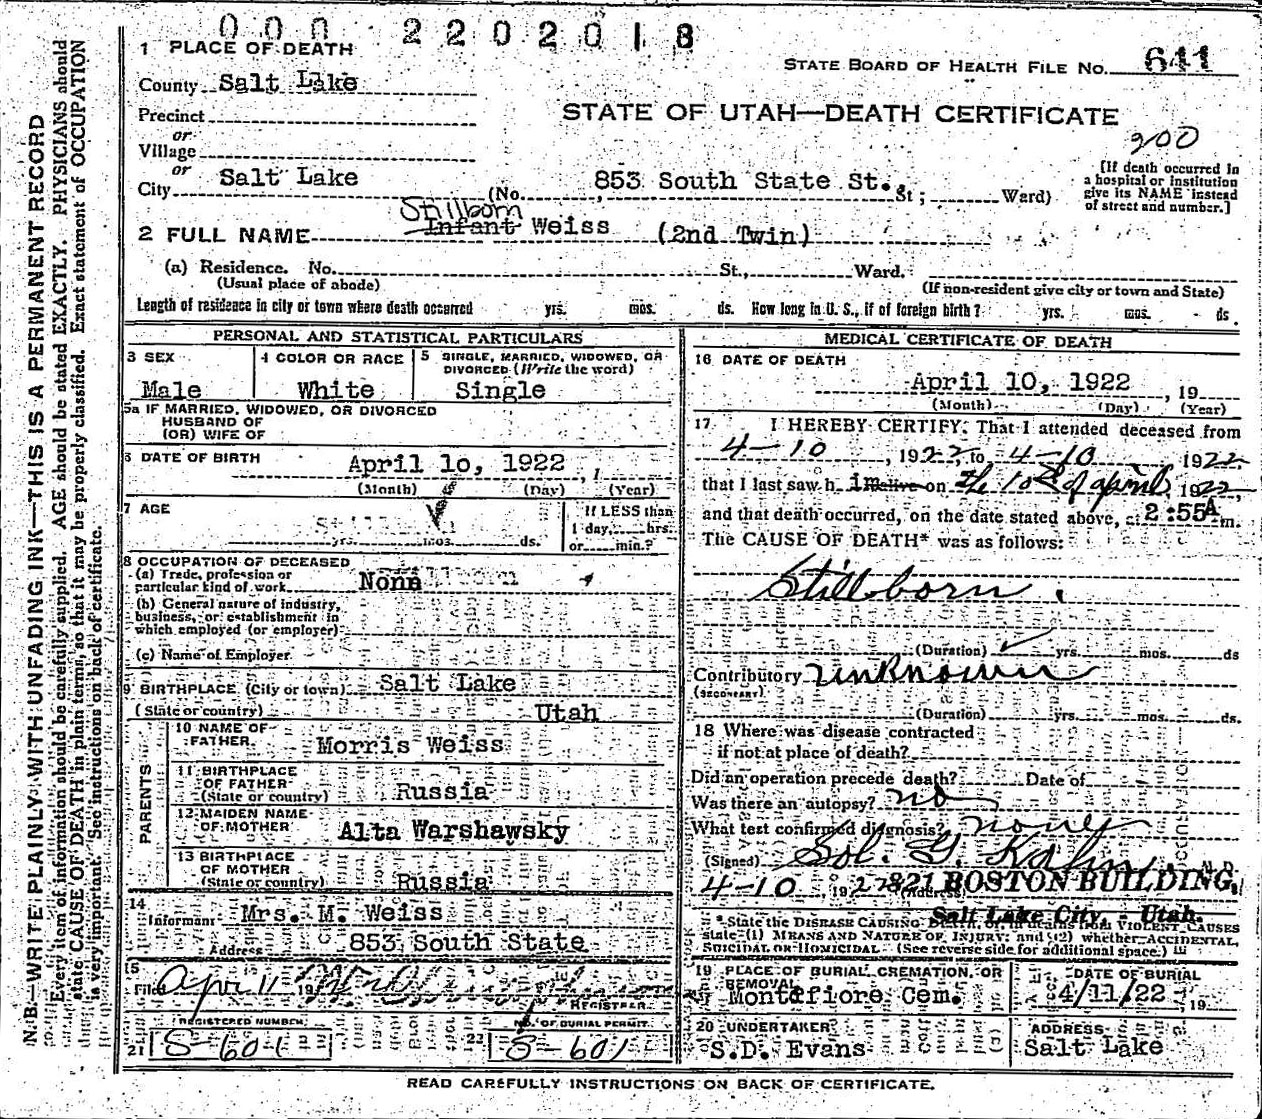 0 0 0 2 2 0 2 0 1 8
1 PLACE OF DEATH
STATE BOARD OF HEALTH FILE No. 641
County Salt Lake
STATE OF UTAH—DEATH CERTIFICATE
Precinct
or
Village
200
or
City Salt Lake (No. 853 South State St. St; Ward)
[If death occurred in
a hospital or institution
give its NAME instead
of street and number.]
Stillborn
2 FULL NAME Infant Weiss (2nd Twin)
(a) Residence. No. St., Ward.
(Usual place of abode) (If non-resident give city or town and State)
Length of residence in city or town where death occurred yrs. mos. ds. How long in U. S., if of foreign birth? yrs. mos. ds.
PERSONAL AND STATISTICAL PARTICULARS
3 SEX 4 COLOR OR RACE 5 SINGLE, MARRIED, WIDOWED, OR
DIVORCED (Write the word)
Male White Single
5a IF MARRIED, WIDOWED, OR DIVORCED
HUSBAND OF
(OR) WIFE OF
6 DATE OF BIRTH April 10, 1922
(Month) (Day) (Year)
7 AGE If LESS than
1 day, hrs.
yrs. mos. ds. or min.?
8 OCCUPATION OF DECEASED
(a) Trade, profession or
particular kind of work None
(b) General nature of industry,
business, or establishment in
which employed (or employer)
(c) Name of Employer
9 BIRTHPLACE (City or town) Salt Lake
(State or country) Utah
PARENTS
10 NAME OF
FATHER Morris Weiss
11 BIRTHPLACE
OF FATHER
(State or country) Russia
12 MAIDEN NAME
OF MOTHER Alta Warshawsky
13 BIRTHPLACE
OF MOTHER
(State or country) Russia
14
Informant Mrs. M. Weiss
Address 853 South State
15
Filed Apr 11 19
REGISTRAR
REGISTERED NUMBER NO. OF BURIAL PERMIT
21 S-601 22 S-601
MEDICAL CERTIFICATE OF DEATH
16 DATE OF DEATH
April 10, 1922, 19
(Month) (Day) (Year)
17 I HEREBY CERTIFY, That I attended deceased from
4-10, 1922, to 4-10 1922
that I last saw h im alive on the 10th of april 1922,
and that death occurred, on the date stated above, at 2:55A m.
The CAUSE OF DEATH* was as follows:
Stillborn.
(Duration) yrs. mos. ds
Contributory unknown
(SECONDARY)
(Duration) yrs. mos. ds.
18 Where was disease contracted
if not at place of death?
Did an operation precede death? Date of
Was there an autopsy? no
What test confirmed diagnosis? none
(Signed) Sol. G. Kahn, M.D.
4-10 1922 821 BOSTON BUILDING,
Salt Lake City, - Utah.
*State the DISEASE CAUSING DEATH, or, in deaths from VIOLENT CAUSES
state (1) MEANS AND NATURE OF INJURY; and (2) whether ACCIDENTAL,
SUICIDAL OR HOMICIDAL. (See reverse side for additional space.)
19 PLACE OF BURIAL, CREMATION, OR
REMOVAL DATE OF BURIAL
Montefiore Cem. 4/11/22 19
20 UNDERTAKER ADDRESS
S.D. Evans Salt Lake
READ CAREFULLY INSTRUCTIONS ON BACK OF CERTIFICATE.
N. B.—WRITE PLAINLY WITH UNFADING INK—THIS IS A PERMANENT RECORD
Every item of information should be carefully supplied. AGE should be stated EXACTLY. PHYSICIANS should
state CAUSE OF DEATH in plain terms, so that it may be properly classified. Exact statement of OCCUPATION
is very important. See instructions on back of certificate.